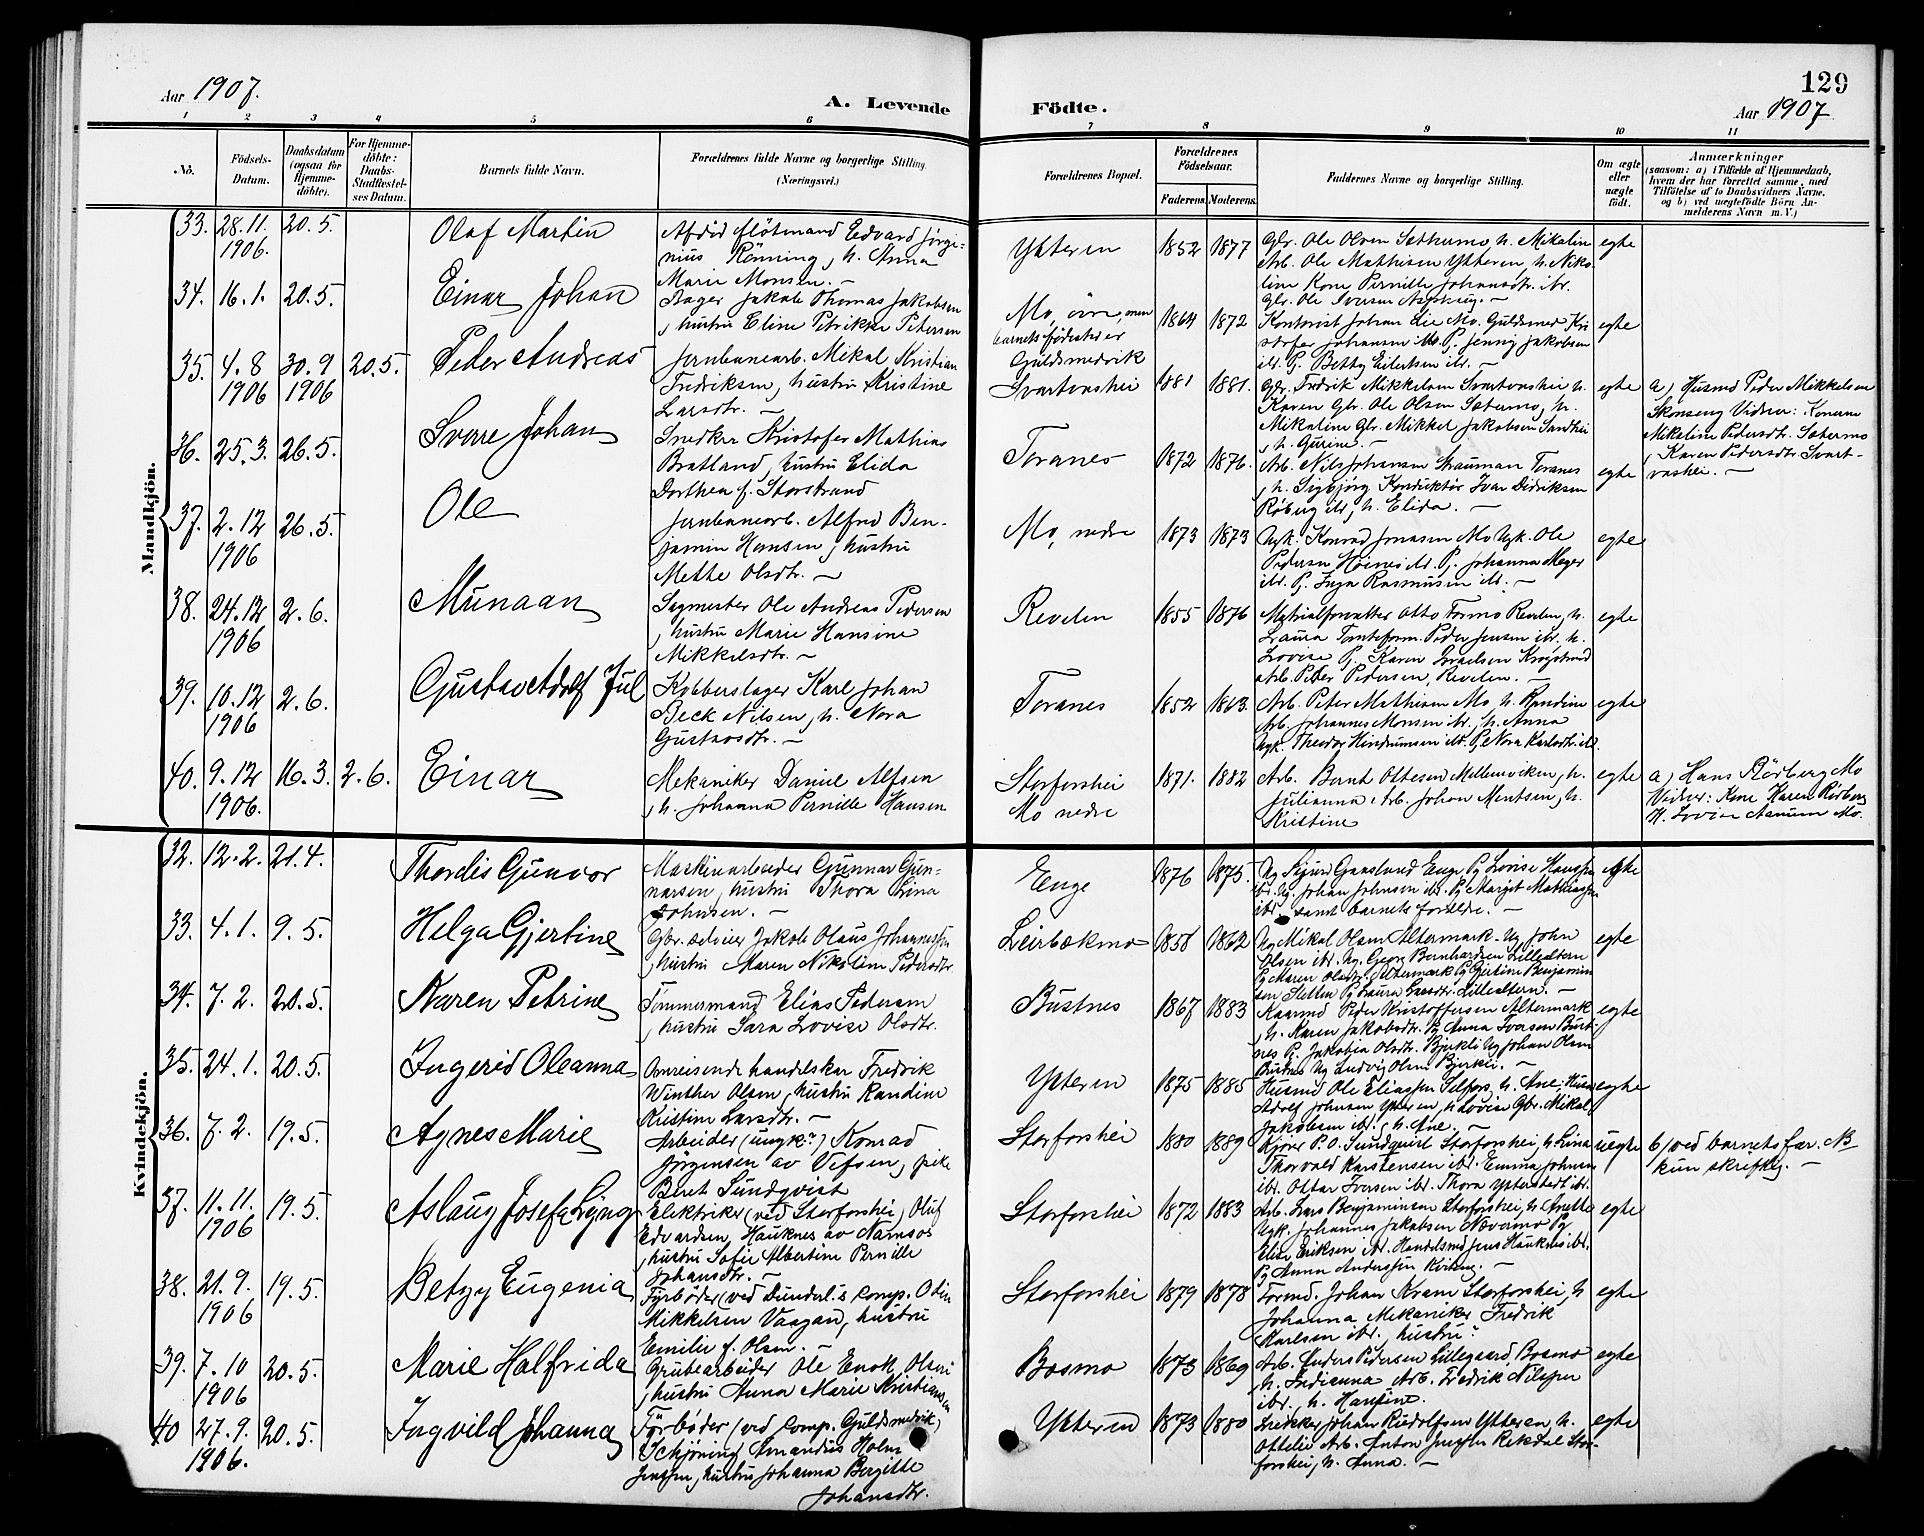 129
Aar 1907.
A. Levende
Födte.
Aar 1907
1 2 3 4 5 6 7 8 9 10 11
No.
Födsels-
Datum.
Daabsdatum
(ogsaa for
Hjemme-
döbte).
For Hjemme-
döbte:
Daabs-
Stadfæstel-
ses Datum.
Barnets fulde Navn.
Forældrenes fulde Navne og borgerlige Stilling.
(Næringsvei.)
Forældrenes Bopæl.
Forældrenes
Födselsaar.
Faderens. Moderens.
Faddernes Navne og borgerlige Stilling.
Om ægte
eller
uægte
födt.
Anmærkninger
(saasom: a) i Tilfælde af Hjemmedaab,
hvem der har forrettet samme, med
Tilföielse af to Daabsvidners Navne,
og b) ved uægtefödte Börn An-
melderens Navn m. V.)
Mandkjön.
33. 28.11. 1906. 20.5. Olaf Martin
Afdød Fløtmand Edvard Jørgi-
nius Rönning, h. Anna
Marie Monsen. —
Ytteren 1852 1877
Gbr. Ole Olsen Sæthermo, h. Mikaline
Arb. Ole Mathisen Ytteren, h. Niko-
line Kone Pernille Johansdtr. ibr.
Gbr. Ole Iversen
egte
34. 16.1. 20.5. Einar Johan
Bager Jakob Thomas Jakobsen
, hustru Eline Petrikke Petersen
Mo, øvre, men
barnets fødested er
Guldsmedvik
1864 1872
Kontorist Johan Lie Mo. Guldsmed Kri
stofer Johansen Mo P. Jenny Jakobsen
ibr. P. Betty Eilertsen ibr. —
egte
35. 4.8 1906 30.9 1906 20.5. Peder Andreas
Jernbanearb. Mikal Kristian
Fredriksen, hustru Kristine
Larsdtr. —
Svartvashei 1881 1881.
Gbr. Fredrik Mikkelsen Svartvashei h.
Karen Gbr. Ole Olsen Sætermo, h.
Mikaline Gbr. Mikkel Jakobsen Sandhei
, h. Gurine. —
egte
a) Husmd Peder Mikkelsen
Skonseng Vidner: Konerne
Mikaline Pedersdtr. Sætermo
, Karen Pedersdtr. Svart-
vashei. —
36. 25.3. 26.5. Sverre Johan
Snedker Kristofer Mathias
Bratland, hustru Elida
Dorthea f. Storstrand
Toranes 1872 1876.
Arb. Nils Johansen Strauman Toranes
, h. Sigbjørg Konduktör Ivar Didriksen
Røberg ibr, h. Elida. —
egte
37. 2.12 1906 26.5. Ole
Jernbanearb. Alfred Ben-
jamin Hansen, hustru
Mette Olsdtr. —
Mo, nedre 1873 1873
Ugk. Konrad Jonasen Mo Ugk. Ole
Pedersen ibr. P. Johanna Meyer
ibr. P. Inga Rasmussen ibr. —
egte
38. 24.12 1906 2.6. Munaan
Sagmester Ole Andreas Pedersen
, hustru Marie Hansine
Mikkelsdtr. —
Revelen 1855 1876
Matrialforvalter Otto Formo Revelen, h.
Laura Tomteform. Peder Jensen ibr. h.
Lovise P. Karen Israelsen Krogstrand
Arb. Peter Pedersen, Revelen. —
egte
39. 10.12 1906 2.6. Gustav Adolf Jul
Kobberslager Karl Johan
Beck Nilsen, h. Nora
Gustavsdtr. —
Toranes 1852 1863.
Arb. Peter Mathisen Mo h. Randine
Arb. Johannes Monsen ibr., h. Anna
Ugk. Theodor Hindrumsen ibr. P. Nora Karlsdtr. ibr.
egte
40. 9.12 1906. 16.3. 2.6. Einar
Mekaniker Daniel Alfsen
, h. Johanna Pernille Hansen
Storforshei
Mo nedre
1871. 1882
Arb. Bernt Ottesen Mellemviken, h.
Julianna, Arb. Johan Mentsen, h.
Kristine
egte
a) Hans Rörberg Mo
Vidner: Kone Karen Rörberg
H. Lovise Mo.
Kvindekjön.
32. 12.2. 21.4. Thordis Gunvor
Maskinarbeider Gunnar Gun-
narsen, hustru Thora Lina
Johnsen. —
Enge 1876 1875.
Ug Sigurd Enge Pg Lovise Hanssen
ibr. Ug. Johan Johnsen ibr. Pg Margit Mathiassen
ibr. samt barnets forældre. —
egte
33. 4.1. 9.5. Helga Gjertine
Gbr. sedvier Jakob Olaus Johannessen
, hustru Maren Nikoline Pedersdtr.
Leirbækmo 1858 1862
Ug Mikal Olsen Altermark. Ug John
Olsen ibr. Ug. Georg Bernhardsen Lillealteren
Pg Maren Olsdtr. Altermark Pg Gjertine Benjamin
sen Sletten Pg Laura Larsdtr. Lillealtern. —
egte
34. 7.2. 20.5. Karen Petrine
Tömmermand Elias Pedersen
, hustru Sara Lovise Olsdtr.
Bustnes 1867 1883
Kaarmd Peder Kristoffersen Altermark
, h. Karen Jakobsdtr. Pg Anna Iversen Bust-
nes P. Jakobea Olsdtr. Bjerkli Ug Johan Olsen
Bustnes Ug Ludvig Olsen Bjerkli. —
egte
35. 24.1. 20.5. Ingerid Oleanna
Omreisende handelskar Fredrik
Winther Olsen, hustru Randine
Kristine Larsdtr. —
Ytteren 1875 1885
Husmd Ole Eliassen Selfors, h. Ane; Husm
Adolf Johnsen Ytteren, h. Lovise Gbr. Mikal
Jakobsen ibr., h. Ane. —
egte
36. 7.2. 19.5. Agnes Marie
Arbeider (ungk.?) Konrad
Jørgensen av Vefsen, pike
Beret Sundqvist
Storforshei 1880 1889
Kjører P. O. Sundquist Storforshei, h. Lina
Thorvald Karstensen ibr. Emma Johnsen
ibr. Ottar Iversen ibr. Thora Ytterstedt ibr.
uegte
b) ved barnets far. NB
kun skriftlig. —
37. 11.11. 1906 19.5. Aslaug Josefa Lyng
Elektriker (ved Storforshei) Oluf
Edvardsen Hauknes av Namsos
, hustru Sofie Albertine Pernille
Johansdtr. —
Storforshei 1872 1883
Arb. Lars Benjaminsen Storforshei, h. Anette
Ugk. Johannes Jakobsen Nævermo Pg
Elise Eriksen ibr. Handelsmd Jens Hauknes ibr.
Pg Anna Anderssen —
egte
38. 21.9. 1906 19.5. Betzy Eugenia
Fyrbøder (ved Dunderl.s Comp. Odin
Mikkelsen Vaagan, hustru
Emilie f. Olsen. —
Storforshei 1879 1878
Formd. Johan Kram Storforshei, h
Johanna Mekaniker Fredrik
Karlsen ibr., hustru?
egte
39. 7.10 1906 20.5. Marie Halfrida
Grubearbeider Ole Enok Olsen
, hustru Anna Marie Kristiansen
Bosmo 1873 1869
Arb. Anders Pedersen Lillegaard, Bosmo
, h. Indianna Arb. Fredrik Nilssen
ibr., h. Hansine.
egte
40 27.9. 1906. 20.5. Ingvild Johanna
Fyrbøder (ved Comp. Guldsmedvik)
Schjöning Amandus Holm
Jenssen, hustru Johanna Bergitte
Johansdtr.
Ytteren 1873 1880
Snedker Johan Rudolfsen Ytteren, h.
Ottelie Arb. Anton Jenssen Rekdal Stor-
forshei, h. Anna. —
egte